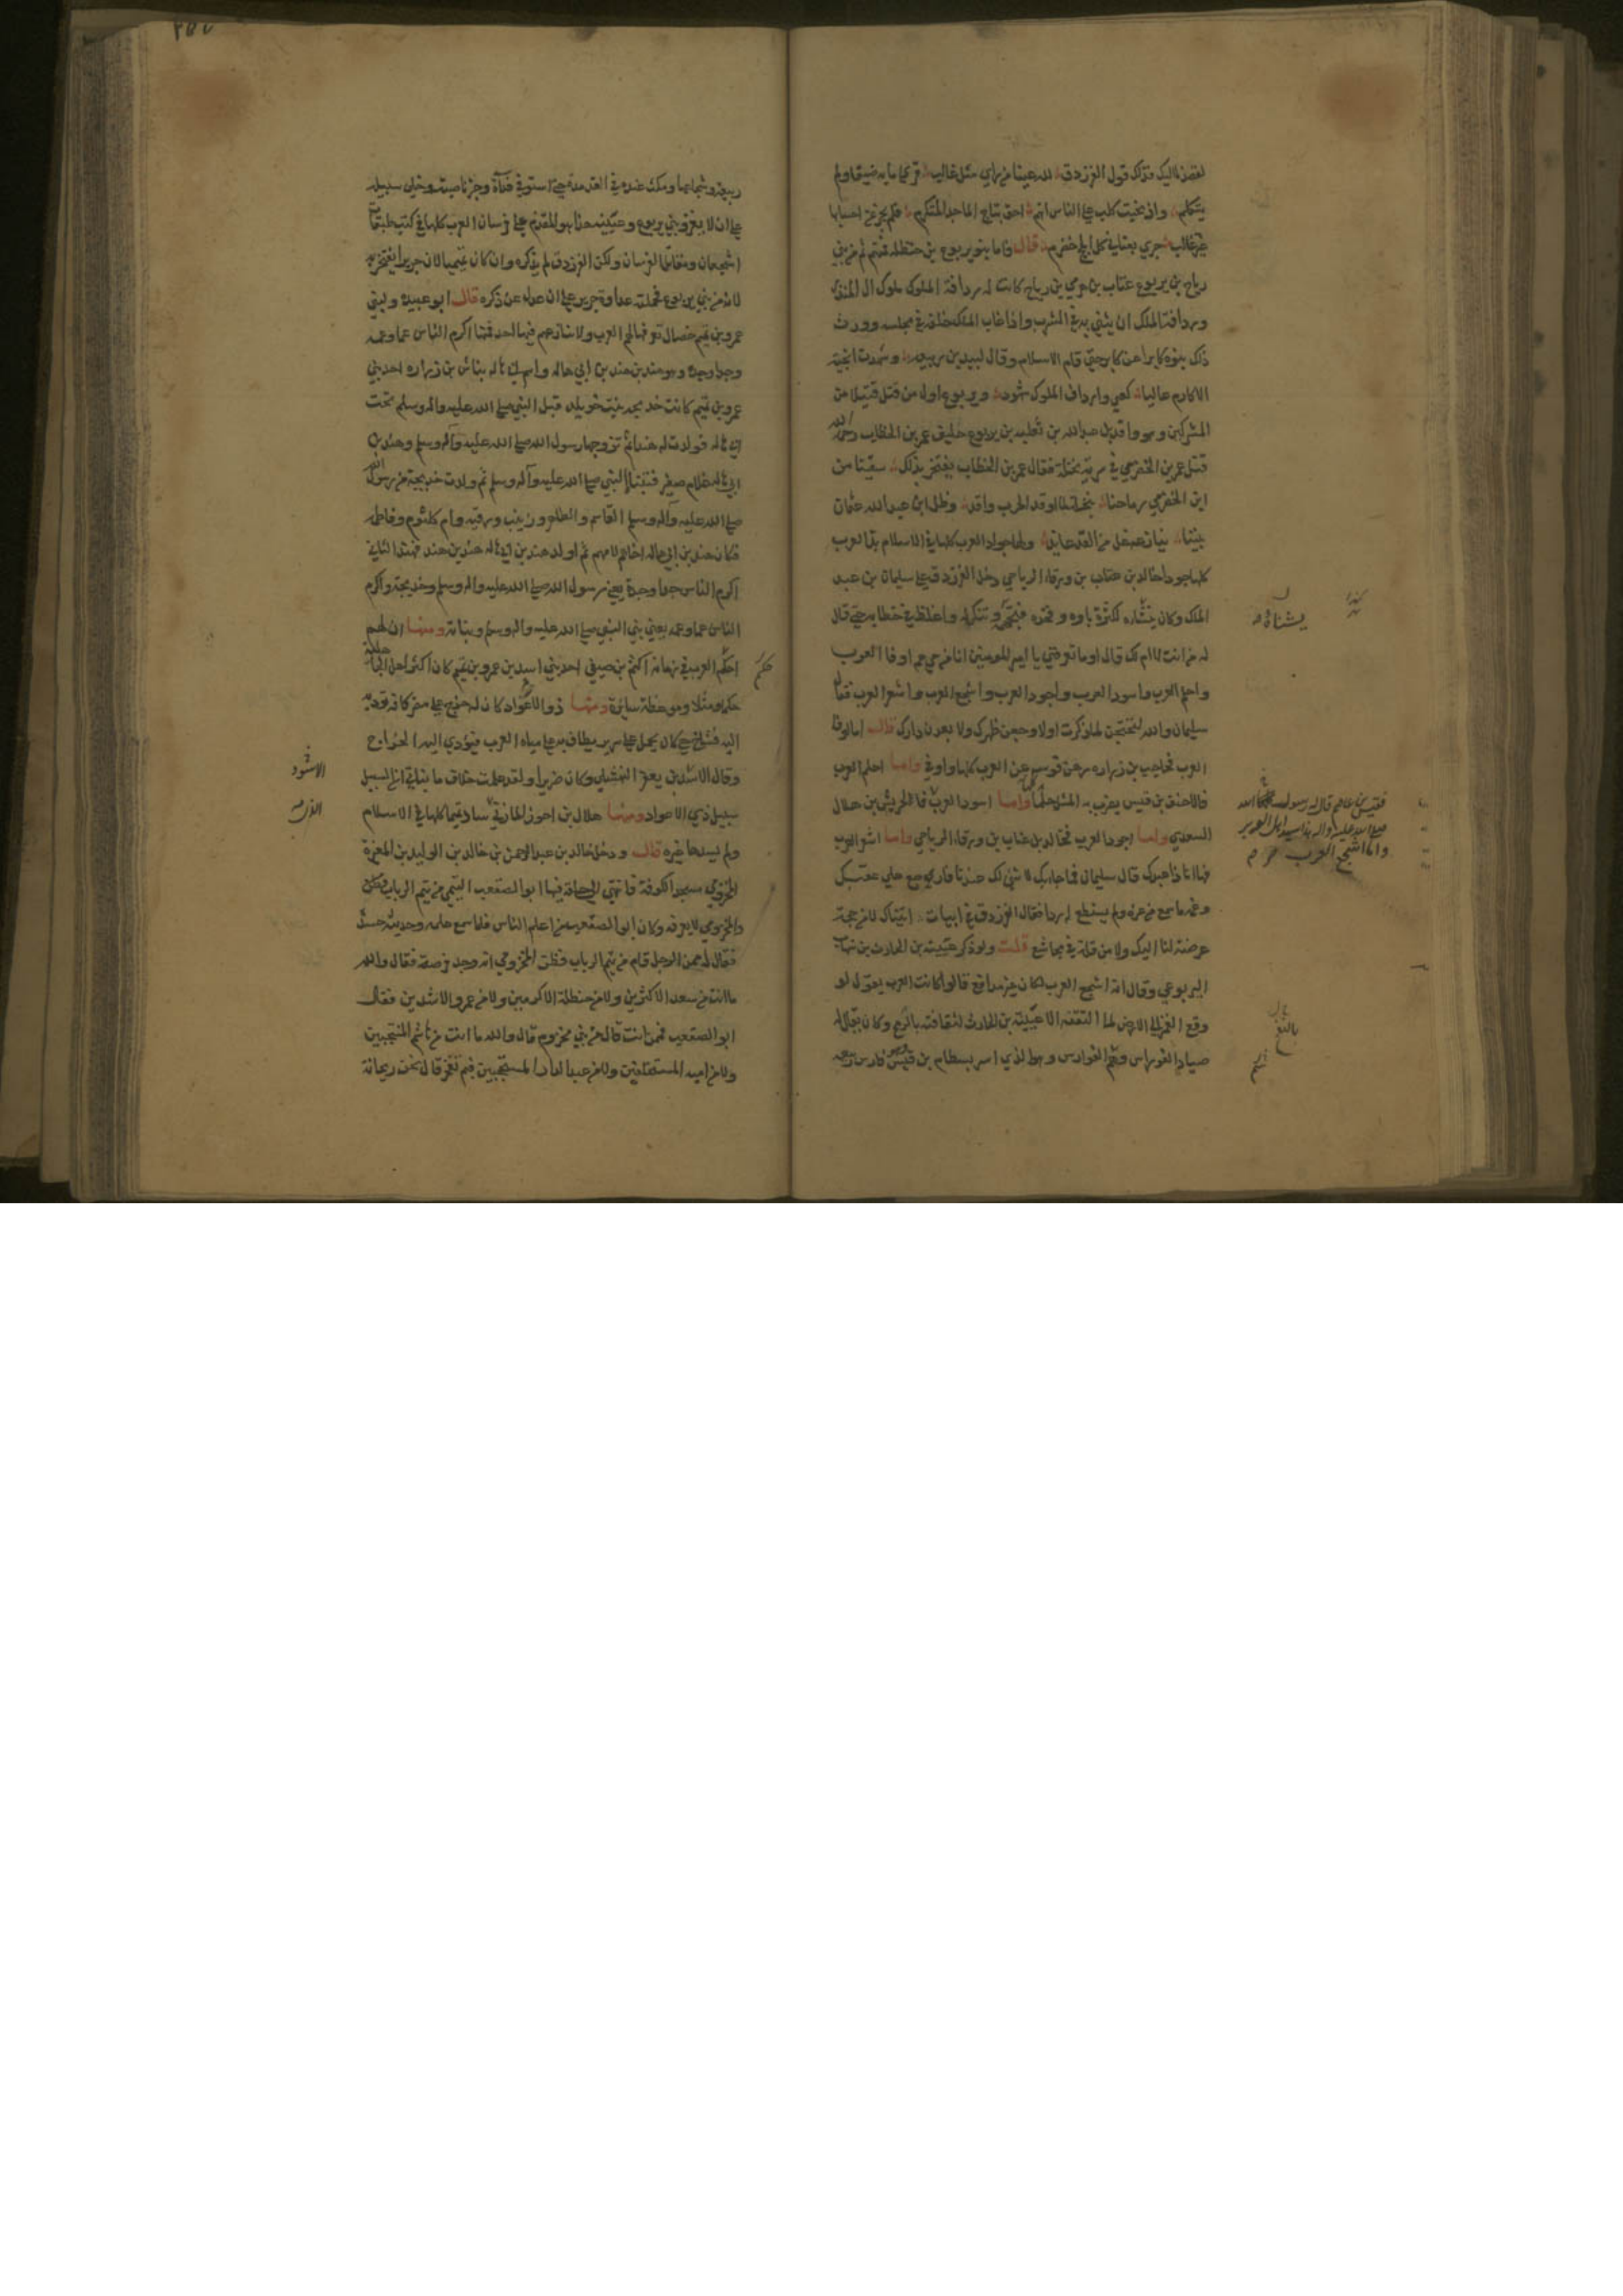 يتكلم واذ نحبت كلب على الناس انهم احق بتاج الماجد المتكرم فلم يجز عن احسابها
غير غالب جرى بعنانى كل ابلج خضرم قال واما بنو يربوع بن حنظلة فمنهم ثم من بني
رياح بن يربوع عتاب بن هرمي بن رياح كانت له ردافة الملوك ملوك ال المنذر
وردافة الملك ان يثنى به في الشرب واذا غاب الملك خلفه في مجلسه وورث
ذلك بنوه كابرا عن كابر حتى قام الاسلام وقال لبيد بن ربيعة وشهدت انجية
الاكارم عاليا كعبي وارداف الملوك شهود ويربوع اول من قتل قتيلا من
المشركين وهو واقد بن عبد الله بن ثعلبة بن يربوع حليف عمر بن الخطاب
قتل عمرو بن الحضرمي في سرية نخلة فقال عمر بن الخطاب يفتخر بذلك سقينا من
ابن الحضرمي رماحنا بنخلة لما اوقد الحرب واقد وظل ابن عبد الله عثمان
بيننا ينازعه غل من القد عاند ولها جواد العرب كلها في الاسلام بدا العرب
كلها جودا خالد بن عتاب بن ورقاء الرياحي دخل الفرزدق على سليمان بن عبد
الملك وكان يشناه لكثرة باوه وفخره فتجهمه وتنكر له واغلظ في خطابه حتى قال
له من انت لا ام لك قال اوما تعرفني يا امير المومنين انا من حي هم اوفا العرب
واحلم العرب واسود العرب واجود العرب واشجع العرب واشعر العرب فقال
سليمان والله لتحتجن لما ذكرت اولا وجعن ظهرك ولا بعدن دارك قال اما اوفا
العرب فحاجب بن زراره رهن قوسه عن العرب كلها واوفى واما احلم العرب
فالاحنف بن قيس يضرب به المثل حلما واما اسود العرب فالحريش بن هلال
السعدي واما اجود العرب فخالد بن عتاب بن ورقاء الرياحي واما اشعر العرب
فها انا ذا عندك قال سليمان فما جا بك لا شي لك عندنا فارجع على عقبك
وغمه ما سمع من عزه ولم يستطع له ردا فقال الفرزدق في ابيات اتيناك لا من حاجة
عرضت لنا اليك ولا من قلة في مجاشع قلت ولو ذكر عتيبة بن الحارث بن شهاب
اليربوعي وقال انه اشجع العرب لكان غير مدافع قالوا كانت العرب تقول لو
وقع القمر الى الارض لما التقفه الا عتيبة بن الحارث لثقافته بالرمح وكان يقال له
صياد الفوارس وسم الفوارس وهو الذي اسر بسطام بن قيس فارس
يشناؤه
فقيس بن عاصم قال له رسول الله
صلى الله عليه واله هذا سيد اهل الوبر
واما اشجع العرب
ربيعة وشجاعها ومكث عنده في القد مدة حتى استوفى فداه وجز ناصيته وخلى سبيله
على ان لا يغزو بني يربوع وعتيبة هذا هو المقدم على فرسان العرب كلها في كتب طبقات
الشجعان ومقاتل الفرسان ولكن الفرزدق لم يذكره وان كان تميميا لان جريرا يفتخر به
لانه من بني يربوع فحملته عداوة جرير على ان عدل عن ذكره قال ابو عبيده ولبني
عمرو بن تميم خصال تعرفها لهم العرب ولا ينازعهم فيها احد فمنها اكرم الناس عما وعمة
وجدا وجدة وهو هند بن هند بن ابي هاله واسم ابي هاله نباش بن زراره احد بني
عمرو بن تميم كانت خديجة بنت خويلد قبل النبي صلى الله عليه واله وسلم تحت
ابي هاله فولدت له هندا ثم تزوجها رسول الله صلى الله عليه وآله وسلم وهند بن
ابي هاله غلام صغير فتبناه النبي صلى الله عليه وآله وسلم ثم ولدت خديجة من رسول الله
صلى الله عليه وآله وسلم القاسم والطاهر وزينب ورقيه وام كلثوم وفاطمه
فكان هند بن ابي هاله اخا لهم لامهم ثم اولد هند بن ابي هاله هند بن هند فهند الثاني
اكرم الناس جدا وجدة يعني رسول الله صلى الله عليه واله وسلم وخديجة واكرم
الناس عما وعمة يعني بني النبي صلى الله عليه واله وسلم وبناته ومنها ان لهم
احكم العرب في زمانه اكثم بن صيفي احد بني اسيد بن عمرو بن تميم كان اكثر اهل الجاهلية
حكما ومثلا وموعظة سايرة ومنها ذو الاعواد كان له خراج على مضر كافة تؤديه
اليه فشاخ حتى كان يحمل على سرير يطاف به على مياه العرب فيؤدي اليه الخراج
وقال الاسود بن يعفر النهشلي وكان ضريرا ولقد علمت خلاف ما ينباني ان السبيل
سبيل ذي الاعواد ومنها هلال بن احوز المازني ساد تميما كلها في الاسلام
ولم يسدها غيره قال ودخل خالد بن عبد الرحمن بن خالد بن الوليد بن المغيرة
المخزومي مسجد الكوفة فانتهى الى حلقة فيها ابو الصقعب التيمي من تيم الرباب
والمخزومي لا يعرفه وكان ابو الصقعب من اعلم الناس فلما سمع علمه وحديثه حسده
فقال له ممن الرجل قال من تيم الرباب فظن المخزومي انه وجد فرصة فقال والله
ما انت من سعد الاكثرين ولا من حنظلة الاكرمين ولا من عمرو الاشدين فقال
ابو الصقعب فمن انت قال من بني مخزوم قال والله ما انت من هاشم المنتجبين
ولا من امية المستخلفين ولا من عبد الدار المستحجبين فبم تفخر قال نحن ريحانة
حكم
الاسود